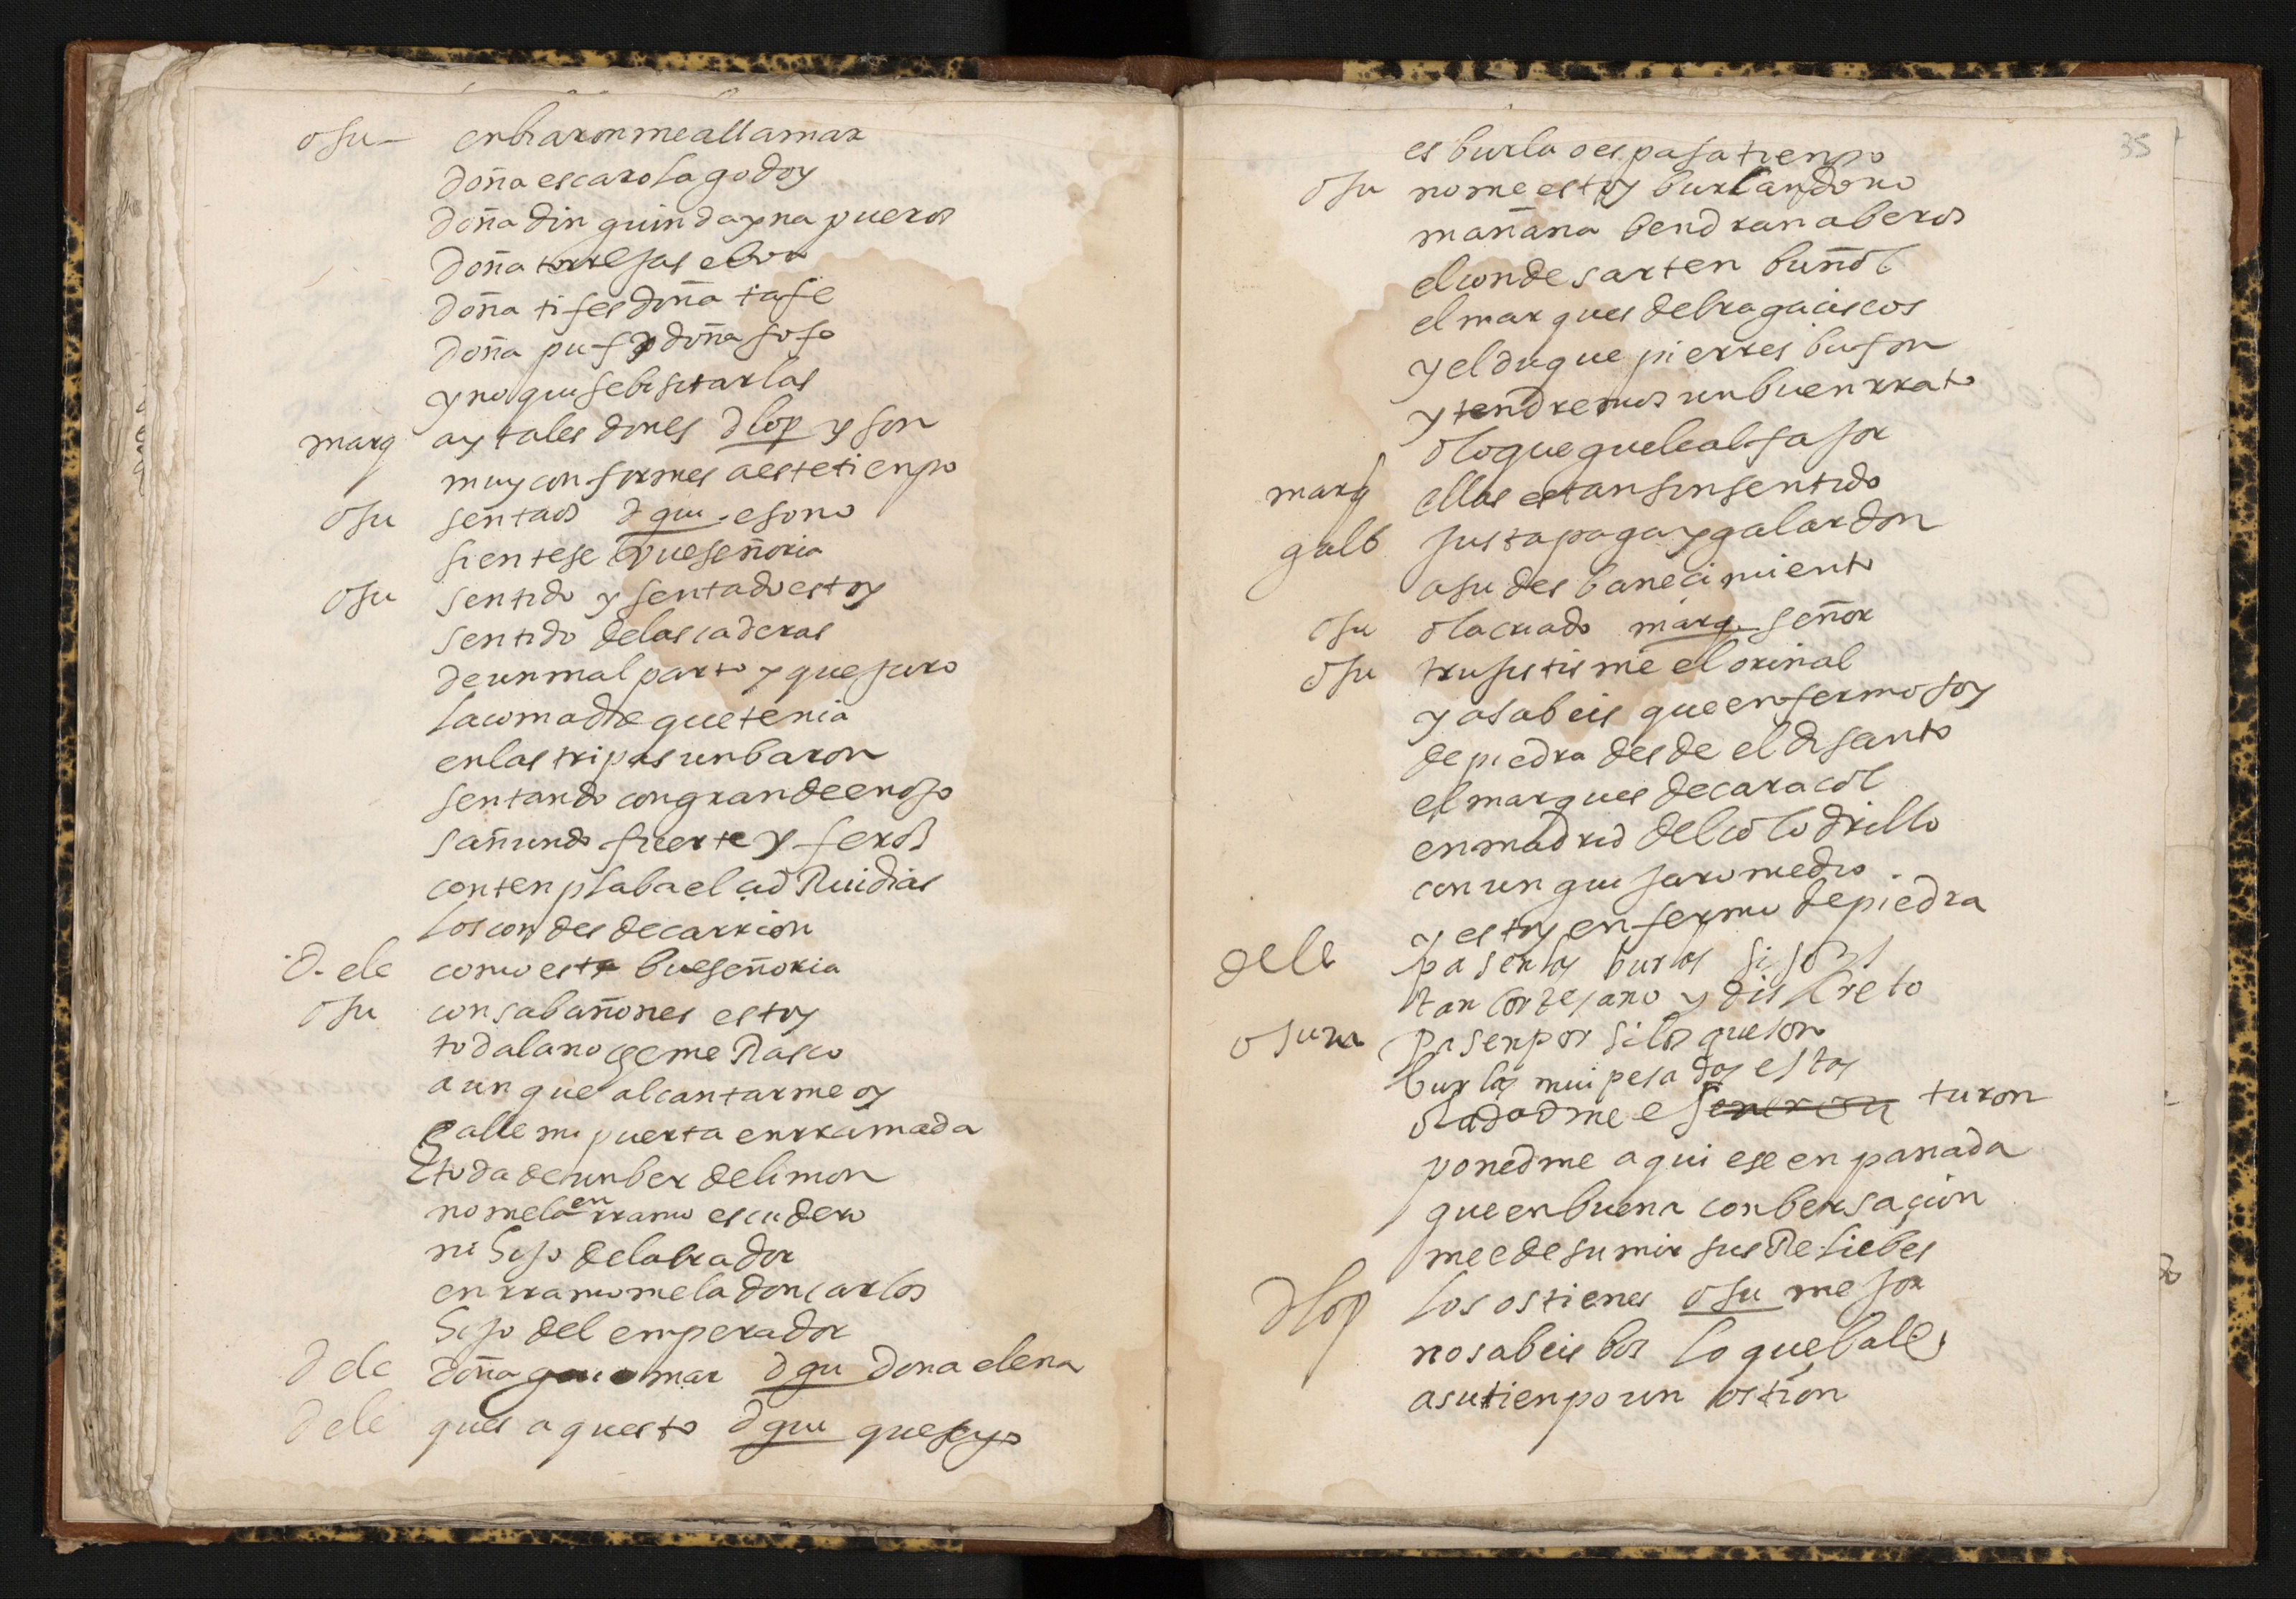 osu- enbiaronme a llamar
doña escarola godoy
doña dinguindayna pueros
doña torresas
doña tifes doña tafe
doña puf y doña fofo
y no quise bisitarlas
marq ay tales dones dlop y son
muy conformes a este tienpo
osu sentaos d gui eso no
sientese bueseñoria
osu sentido y sentado estoy
sentido de las caderas
de un mal parto y que juro
la comadre que tenia
en las tripas un baron
sentando con grande enojo
sañundo fuerte y feros
contenplaba el cid Ruidias
los condes de carrion
D. ele como esta bueseñoria
osu con sabañones estoy
toda la noche me Rasco
aunque al cantarme oy
halle mi puerta enrramada
toda de un berde limon
no me la enrramo escudero
ni hijo de labrador
enrramomela don carlos
hijo del emperador
d ele doña guiomar d gu dona elena
d ele ques aquesto d gui que se yo
35
es burla o es pasatienpo
osu no me estoy burlando no
mañana bendran a beros
el conde sarten buñol
el marques de bragaciscos
y el duque pierres bufon
y tendremos un buen rrato
o lo que guele alfajor
marq ellas estan sin sentido
galb justa paga y galardon
a su desbanecimiento
osu ola criado marq señor
osu trujistisme el orinal
ya sabeis que enfermo soy
de piedra desde el disanto
el marques de caracol
en madrid del colodrillo
con un guijarro me dio
y estoy enfermo de piedra
d ele pasen las burlas si sois
tan cortesano y discreto
osuna pasen por si los que son
burlas mui pesadas estas
ola dadme ese turon
ponedme aqui ese enpanada
que en buena conbersaçion
me e de sumir sus Reliebes
dlop los ostiones osu mejor
no sabeis bos lo que bale
a su tienpo un ostion